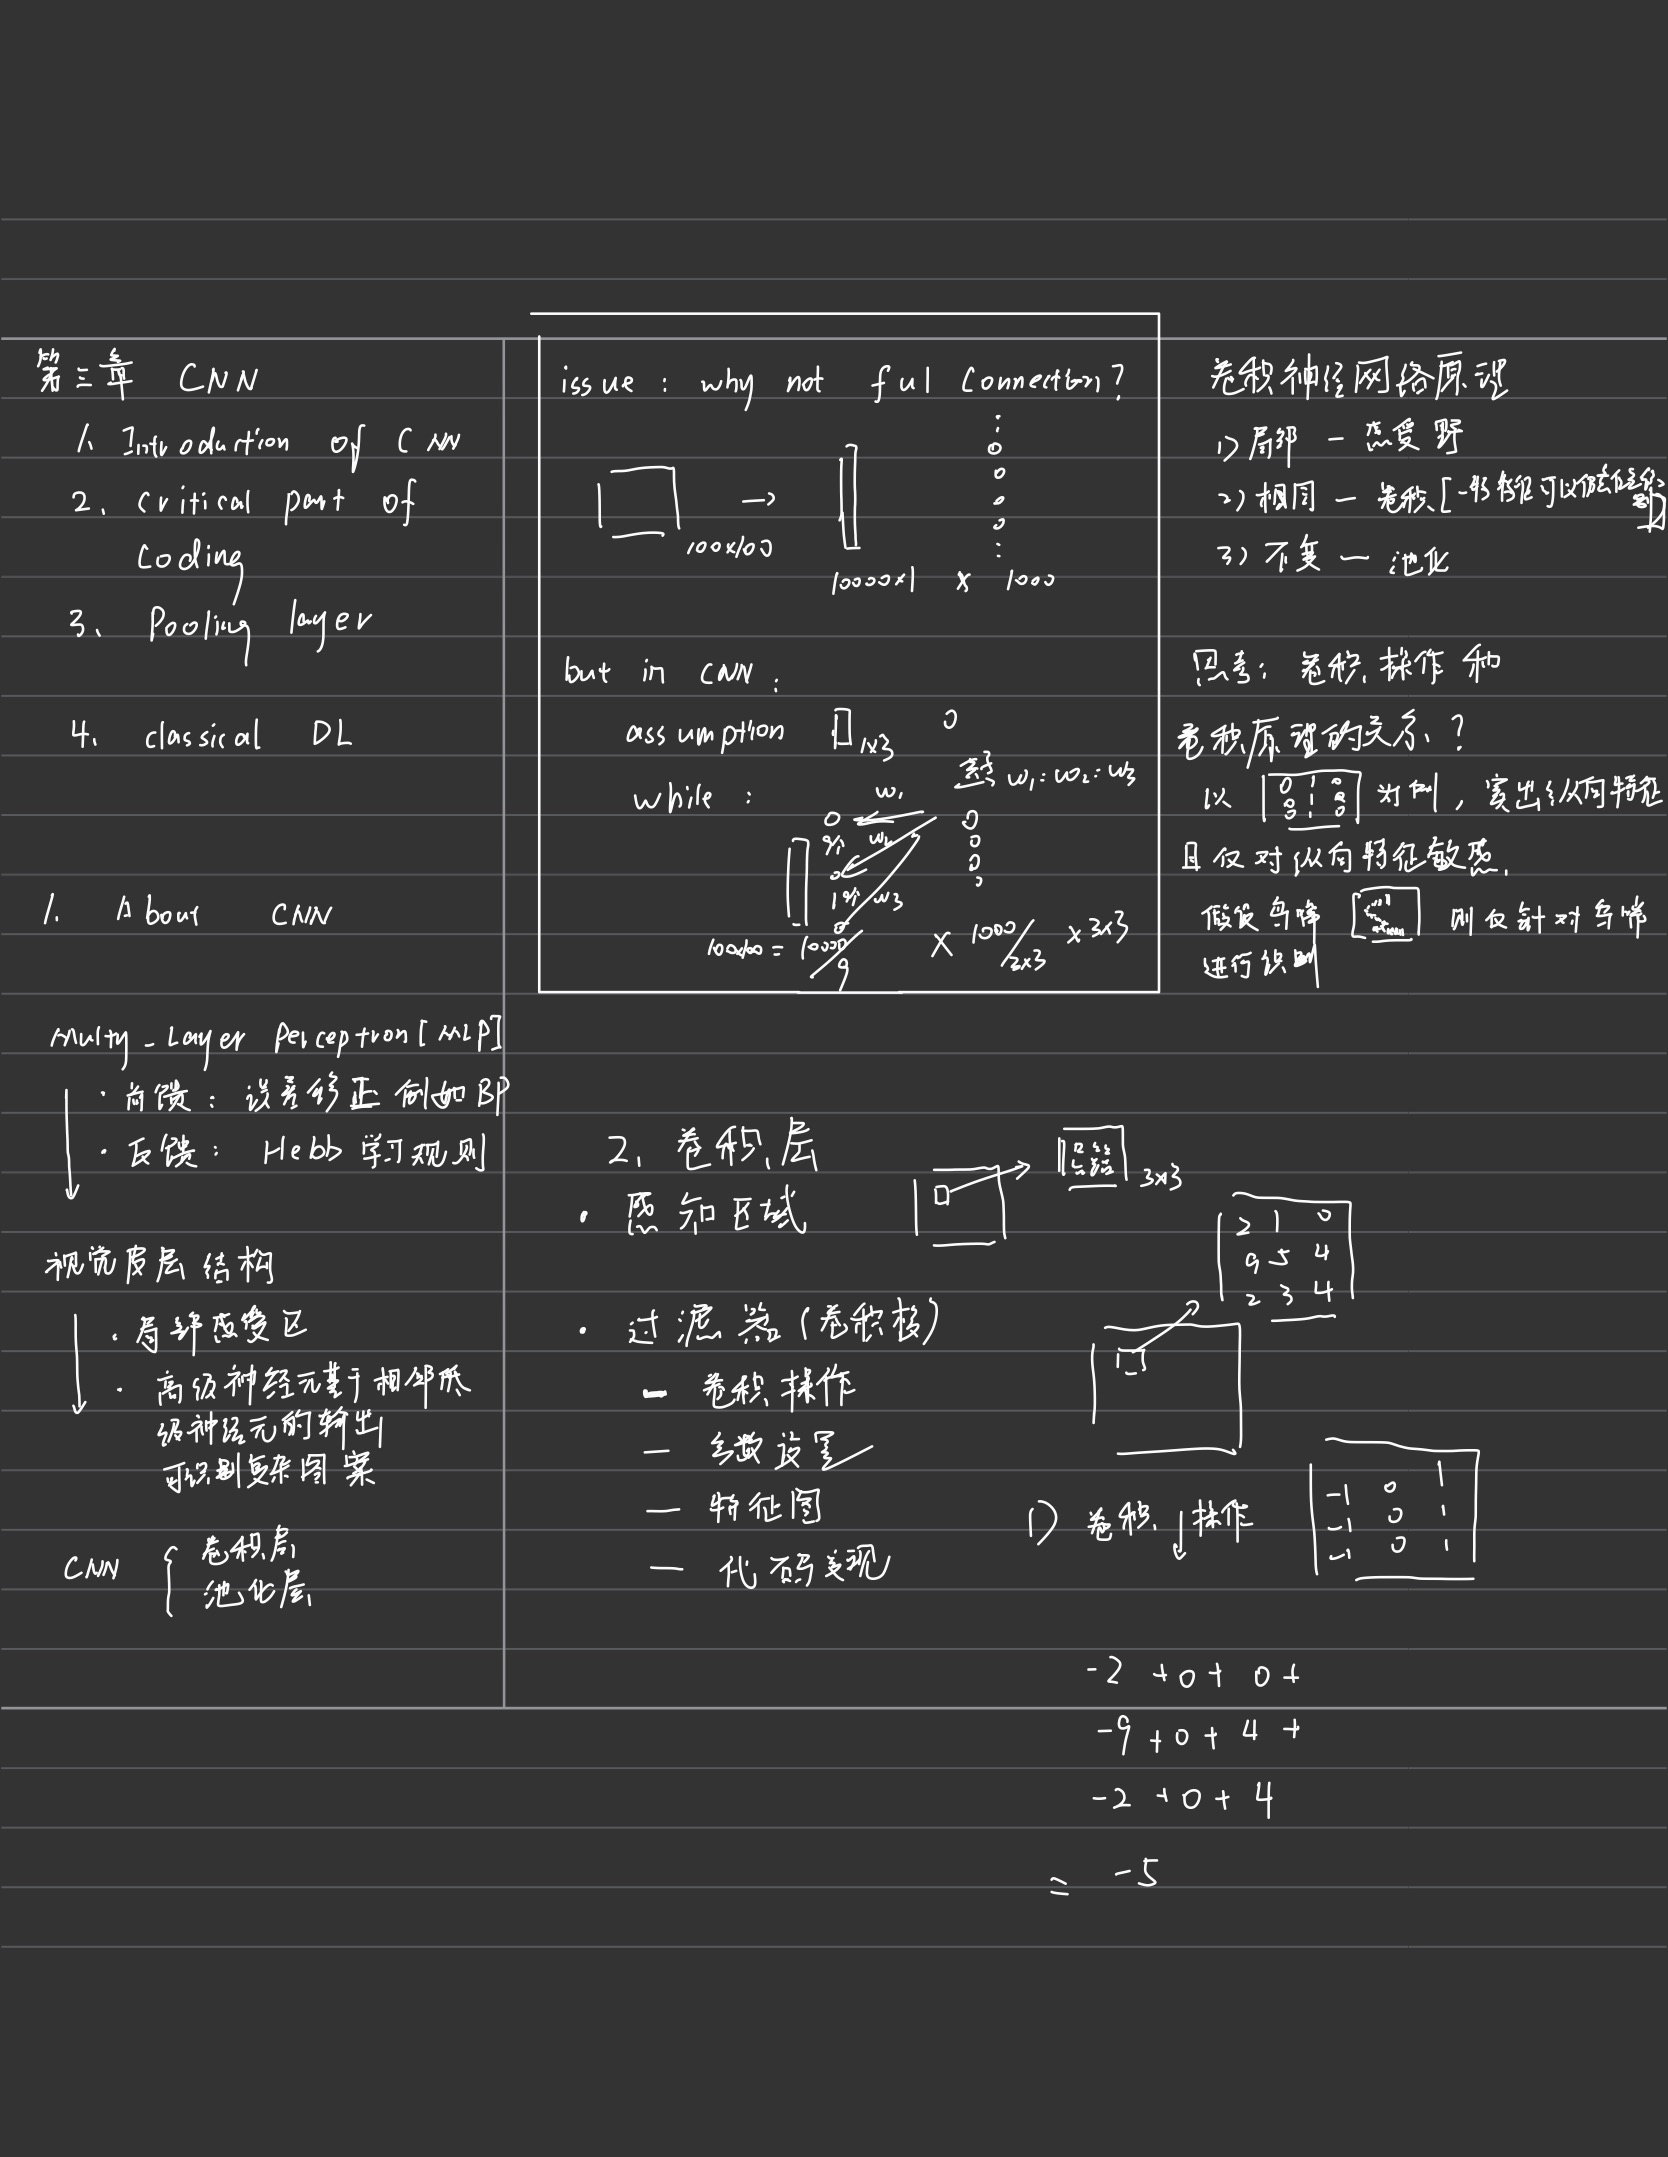 第三章 CNN
1. Introduction of CNN
2. critical part of
coding
3. Pooling layer
4. classical DL
1. About CNN
Multy-Layer Perceptron [MLP]
· 前馈: 误差修正 例如BP
· 反馈: Hebb 学习规则
视觉皮层结构
· 局部感受区
· 高级神经元基于相邻低
级神经元的输出
可识别复杂图案
CNN { 卷积层
池化层
issue: why not ful connection?
100×100
10000×1 × 1000
but in CNN:
assumption 1×3 0
while: w1 w1:w2:w3
w2
w3
100×100 = 10000
9
× 1000/3×3 × 3×3
卷积神经网络原理
1) 局部 — 感受野
2) 相同 — 卷积 [一般特征可以
3) 不变 — 池化
思考: 卷积操作和
卷积原理的关系?
以 0 1 0
0 1 0
0 1 0
为例, 突出纵向特征
且仅对纵向特征敏感.
假设鸟嘴 则仅針对鸟嘴
进行识别
2. 卷积层
· 感知区域
3×3
· 过滤器 (卷积核)
- 卷积操作
- 参数设置
- 特征图
- 代码实现
2 1 0
9 5 4
2 3 4
1) 卷积操作
-1 0 1
-1 0 1
-1 0 1
-2 +0+ 0+
-9 +0+ 4 +
-2 +0+ 4
= -5